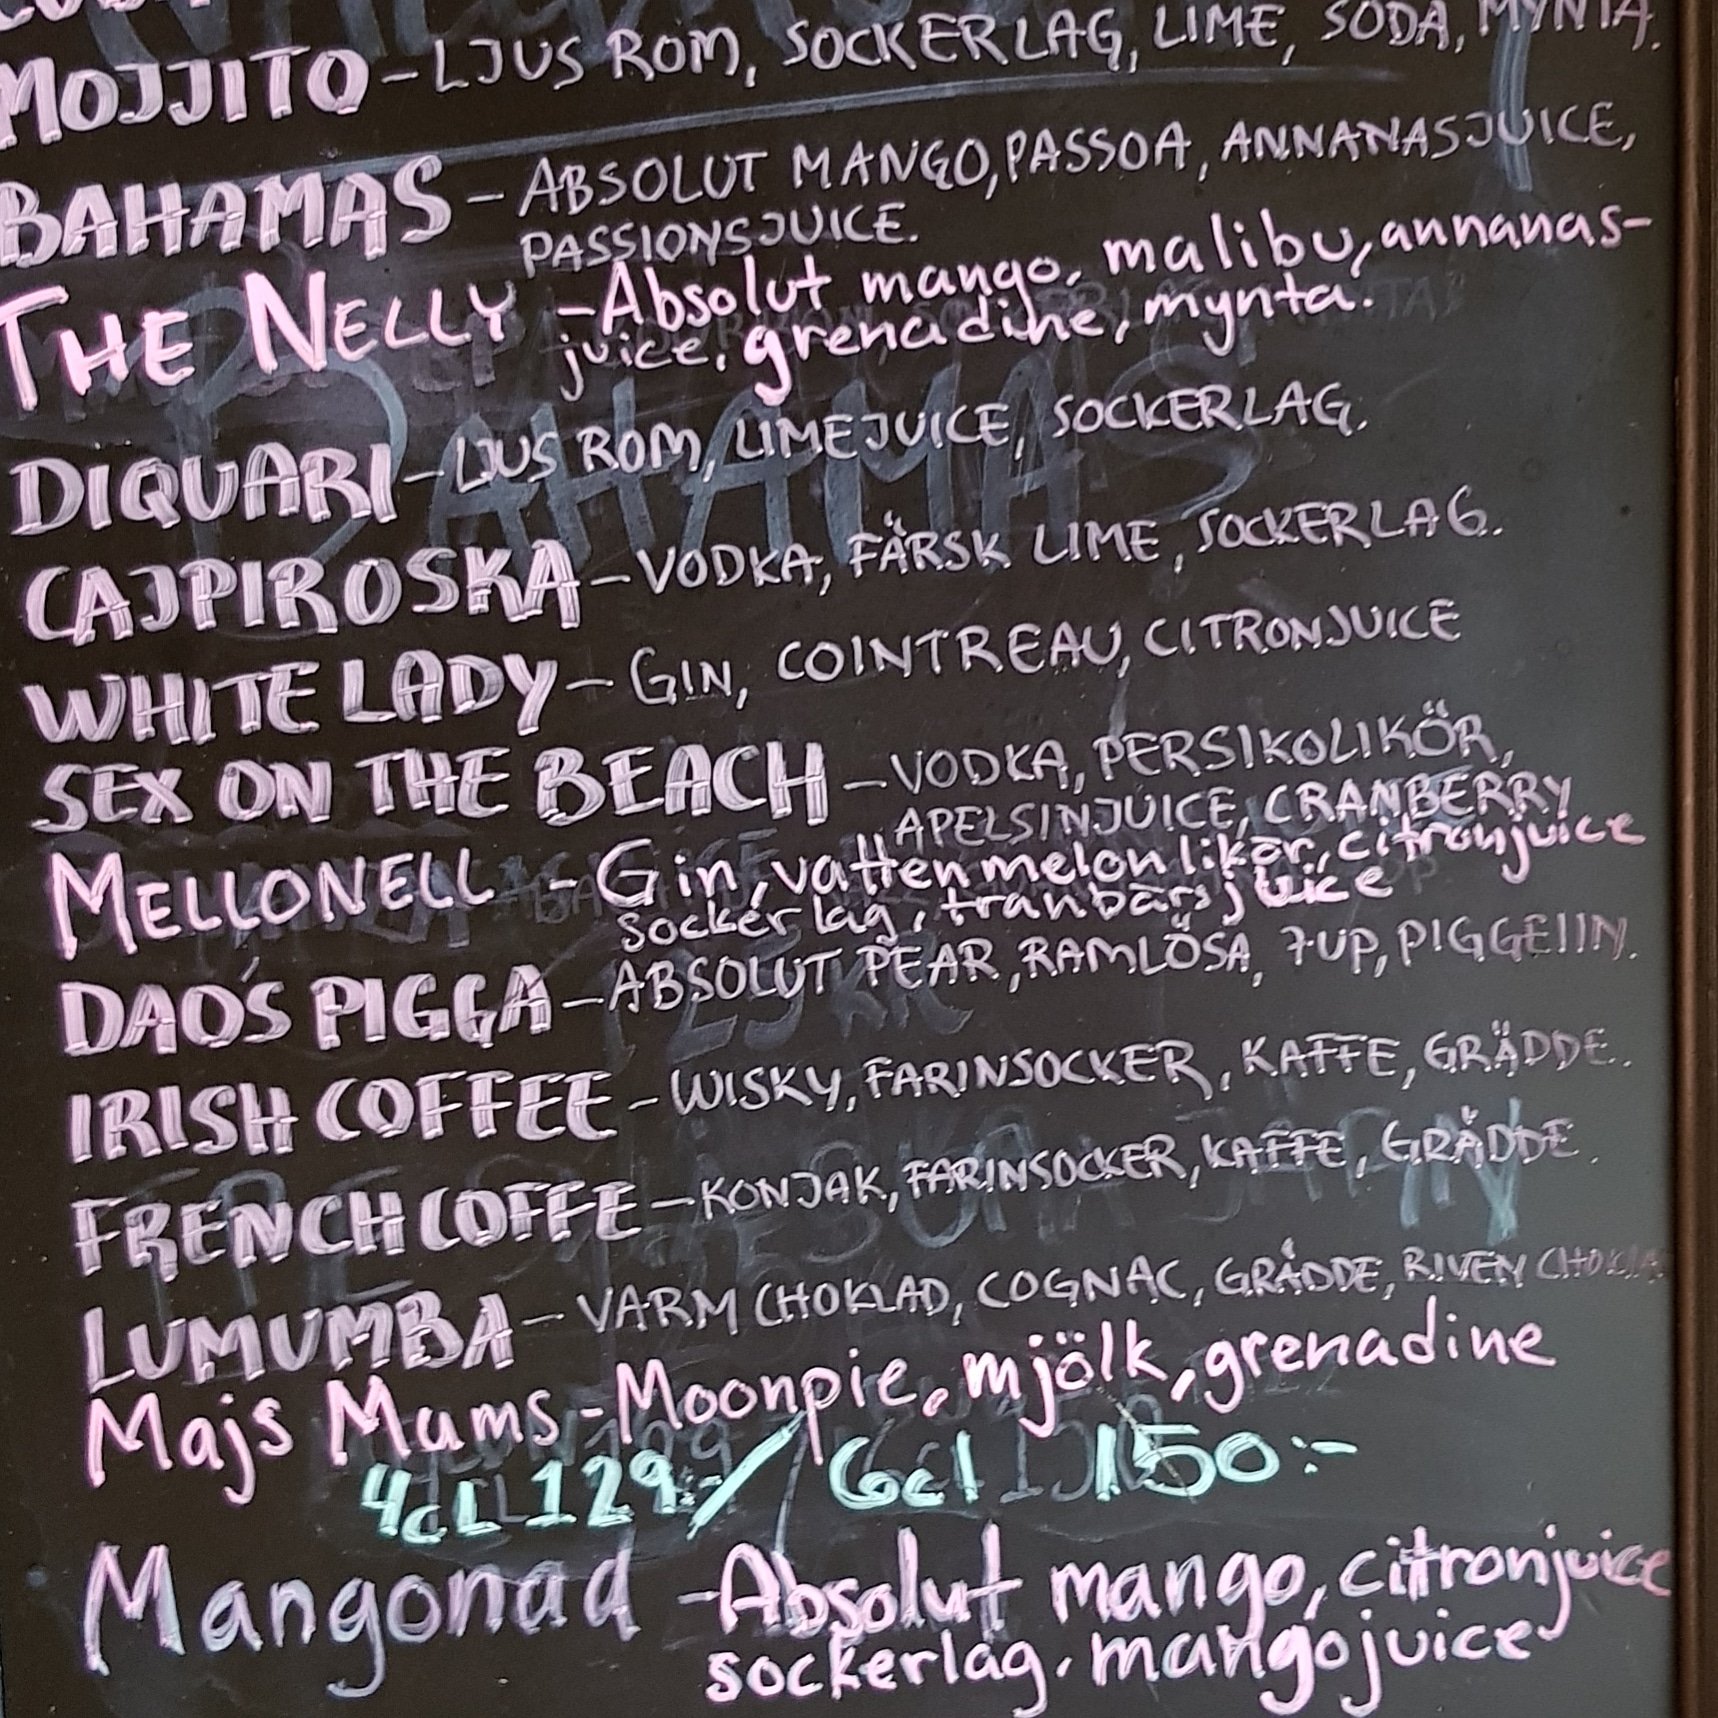 MOJJITO - LJUS ROM, SOCKERLAG, LIME, SODA, MYNTA.
BAHAMAS - ABSOLUT MANGO, PASSOA, ANNANASJUICE,
PASSIONSJUICE.
THE NELLY - Absolut mango, malibu, annanas-
juice, grenadine, mynta.
DIQUARI - LJUS ROM, LIMEJUICE, SOCKERLAG.
CAJPIROSKA - VODKA, FÄRSK LIME, SOCKERLAG.
WHITE LADY - GIN, COINTREAU, CITRONJUICE
SEX ON THE BEACH - VODKA, PERSIKOLIKÖR,
APELSINJUICE, CRANBERRY
MELLONELL - Gin, vattenmelon likör, citronjuice
sockerlag, tranbärsjuice
DAO'S PIGGA - ABSOLUT PEAR, RAMLÖSA, 7UP, PIGGELIN.
IRISH COFFEE - WISKY, FARINSOCKER, KAFFE, GRÄDDE.
FRENCH COFFE - KONJAK, FARINSOCKER, KAFFE, GRÄDDE.
LUMUMBA - VARM CHOKLAD, COGNAC, GRÄDDE, RIVEN
Majs Mums - Moonpie, mjölk, grenadine
4cL 129:-/ 6cl 150:-
Mangonad - Absolut mango, citronjuice
sockerlag, mangojuice